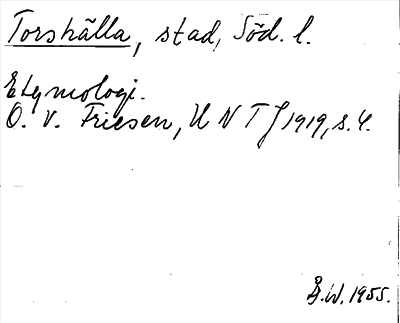 Torshälla, stad, Söd. l.
Etymologi.
O. v. Friesen, UNTJ 1919, s. 4.
Å.W. 1955.